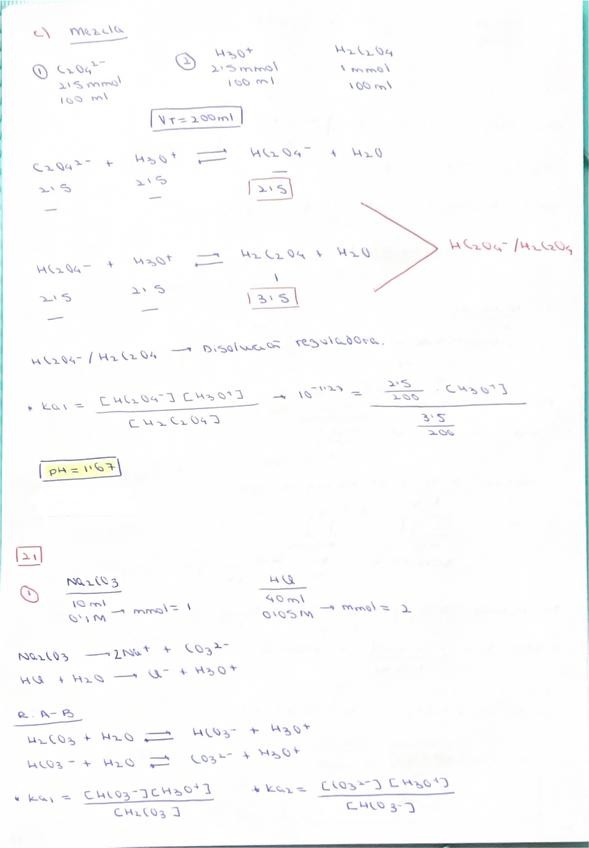 c) Mezcla
① C₂O₄²⁻ ② H₃O⁺ H₂C₂O₄
2'5 mmol 2'5 mmol 1 mmol
100 ml 100 ml 100 ml
VT = 200 ml
C₂O₄²⁻ + H₃O⁺ ⇌ HC₂O₄⁻ + H₂O
2'5 2'5 —
— — 2'5
HC₂O₄⁻ / H₂C₂O₄
HC₂O₄⁻ + H₃O⁺ ⇌ H₂C₂O₄ + H₂O
2'5 2'5 1
— — 3'5
HC₂O₄⁻ / H₂C₂O₄ → Disolución reguladora.
* Ka₁ = [HC₂O₄⁻][H₃O⁺] / [H₂C₂O₄] → 10⁻¹'²⁷ = 2'5/200 · [H₃O⁺] / 3'5/200
pH = 1'67
21
① Na₂CO₃ HCl
10 ml 40 ml
0'1M → mmol = 1 0'05M → mmol = 2
Na₂CO₃ → 2Na⁺ + CO₃²⁻
HCl + H₂O → Cl⁻ + H₃O⁺
R. A-B
H₂CO₃ + H₂O ⇌ HCO₃⁻ + H₃O⁺
HCO₃⁻ + H₂O ⇌ CO₃²⁻ + H₃O⁺
* Ka₁ = [HCO₃⁻][H₃O⁺] / [H₂CO₃] * Ka₂ = [CO₃²⁻][H₃O⁺] / [HCO₃⁻]